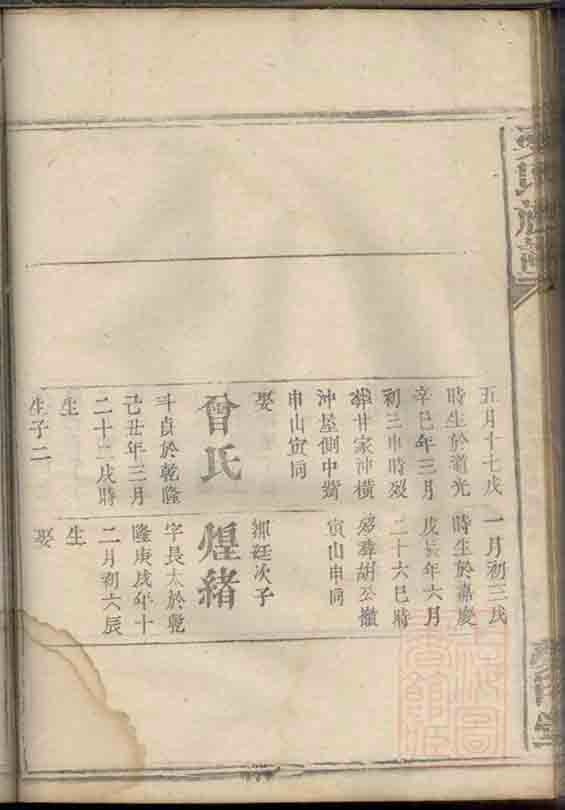 五月十七戌
時生於道光
辛巳年三月
初三申時歿
葬廿家沖橫
沖屋側中對
申山寅同
娶
曾氏
斗貞於乾隆
己丑年三月
二十二戌時
生
生子二
一月初三戌
時生於嘉慶
戊亥年六月
二十六巳時
歿葬胡公嶺
寅山申同
廷次子
煌緒
字長太於乾
隆庚戌年十
二月初六辰
生
娶
氏族譜